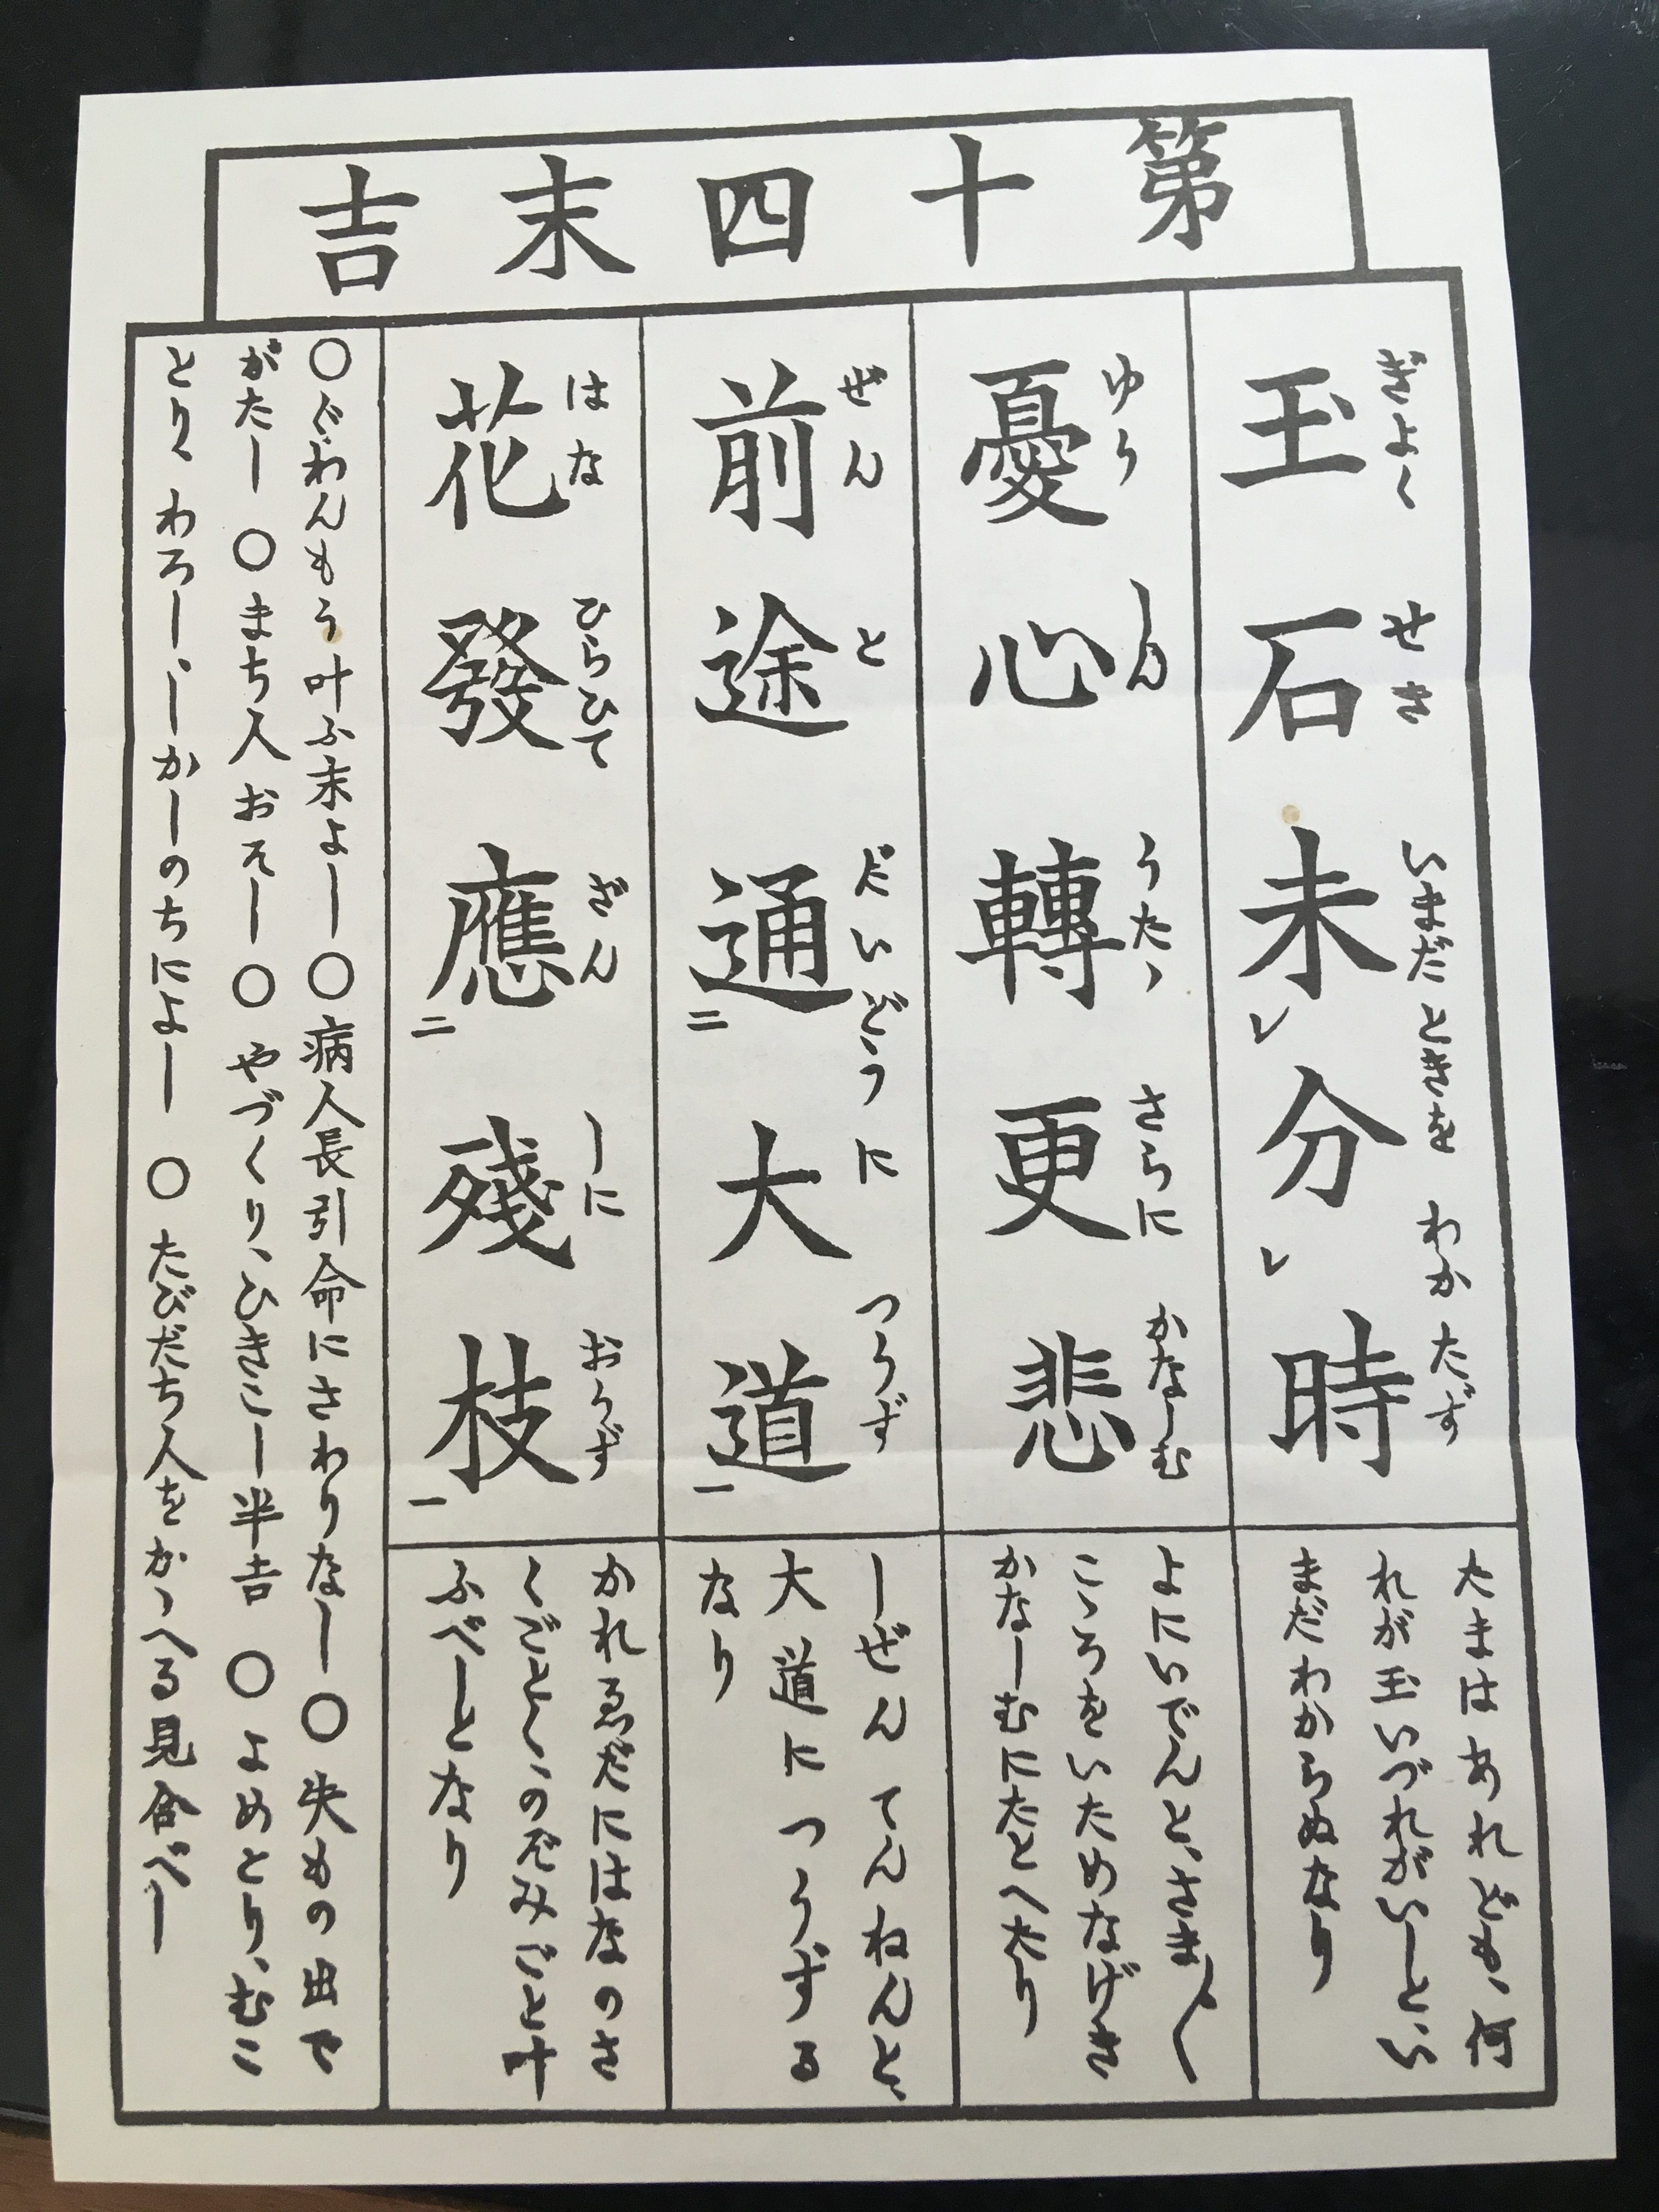 第十四末吉
玉石未レ分レ時
ぎよく せき いまだ ときを わか たず
憂心轉更悲
ゆう しん うたゝ さらに かなしむ
前途通二大道一
ぜん と だいどうに つうず
花發應二殘枝一
はな ひらひて ざん しに おうず
たまはあれども、何
れが玉いづれがいしとい
まだわからぬなり
よにいでんと、さま〲
こゝろをいためなげき
かなしむにたとへたり
しぜんてんねんと、
大道につうずる
なり
かれゑだにはなのさ
くごとく、のぞみごと叶
ふべしとなり
〇ぐわんもう叶ふ末よし〇病人長引命にさわりなし〇失もの出で
がたし〇まち人おそし〇やづくり、ひきこし半吉〇よめとり、むこ
とり、わろし、しかしのちによし〇たびだち人をかゝへる見合べし